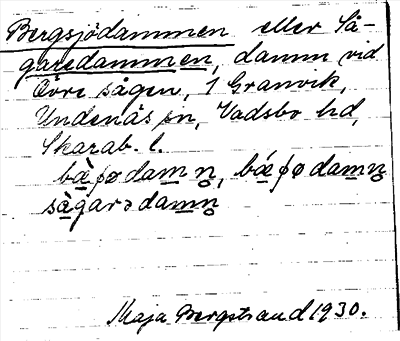 Bergsjödammen eller Så-
garedammen, damm vid
Övre sågen, 1 Granvik,
Undenäs sn, Vadsbo hd,
Skarab. l.
bæ̀ʃødamn̥, bǽʃødamn̥
sàgarədamn̥
Maja Bergstrand 1930.